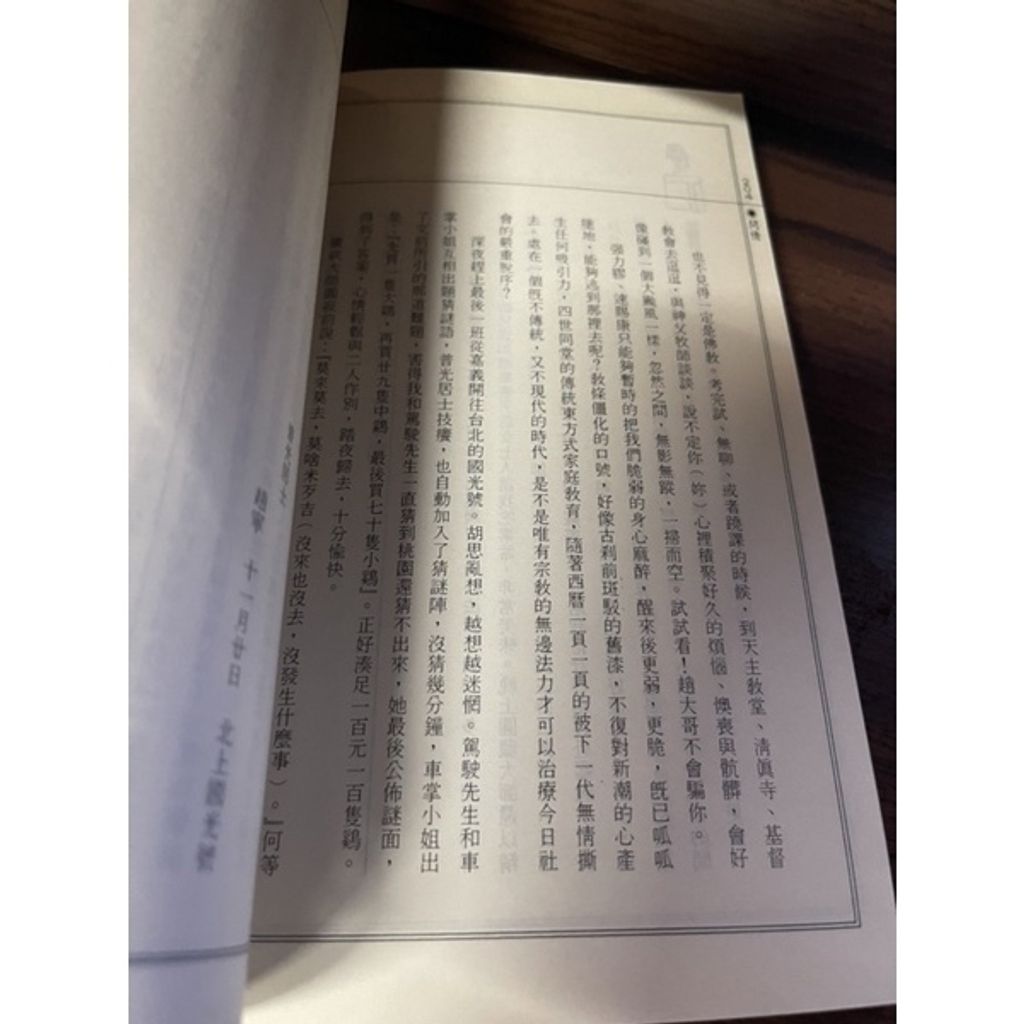 問情
也不見得一定是佛教。考完試、無聊、或者蹺課的時候，到天主教堂、清真寺、基督
教會去逛逛，與神父牧師談談，說不定你（妳）心裡積聚好久的煩惱、懊喪與骯髒，會好
像碰到一個大颱風一樣，忽然之間，無影無蹤，一掃而空。試試看！趙大哥不會騙你。
強力膠、速賜康只能夠暫時的把我們脆弱的身心麻醉，醒來後更弱，更脆，既已呱呱
墮地，能夠逃到那裡去呢？教條僵化的口號，好像古利前斑駁的舊漆，不復對新潮的心產
生任何吸引力，四世同堂的傳統東方式家庭教育，隨著西曆一頁一頁的被下一代無情撕
去。處在一個既不傳統，又不現代的時代，是不是唯有宗教的無邊法力才可以治療今日社
會的嚴重脫序？
深夜趕上最後一班從嘉義開往台北的國光號。胡思亂想，越想越迷惘。駕駛先生和車
掌小姐互相出題猜謎語，普光居士技癢，也自動加入了猜謎陣，沒猜幾分鐘，車掌小姐出
了文前所引的那道難題，害得我和駕駛先生一直猜到桃園還猜不出來，她最後公佈謎面，
是：「先買一隻大鷄，再買廿九隻中鷄，最後買七十隻小鷄」。正好湊足一百元一百隻鷄。
得到了答案，心情輕鬆與二人作別，踏夜歸去，十分愉快。
「莫來莫去，莫啥米歹吉（沒來也沒去，沒發生什麼事）。」何等
十一月廿日　北上國光號